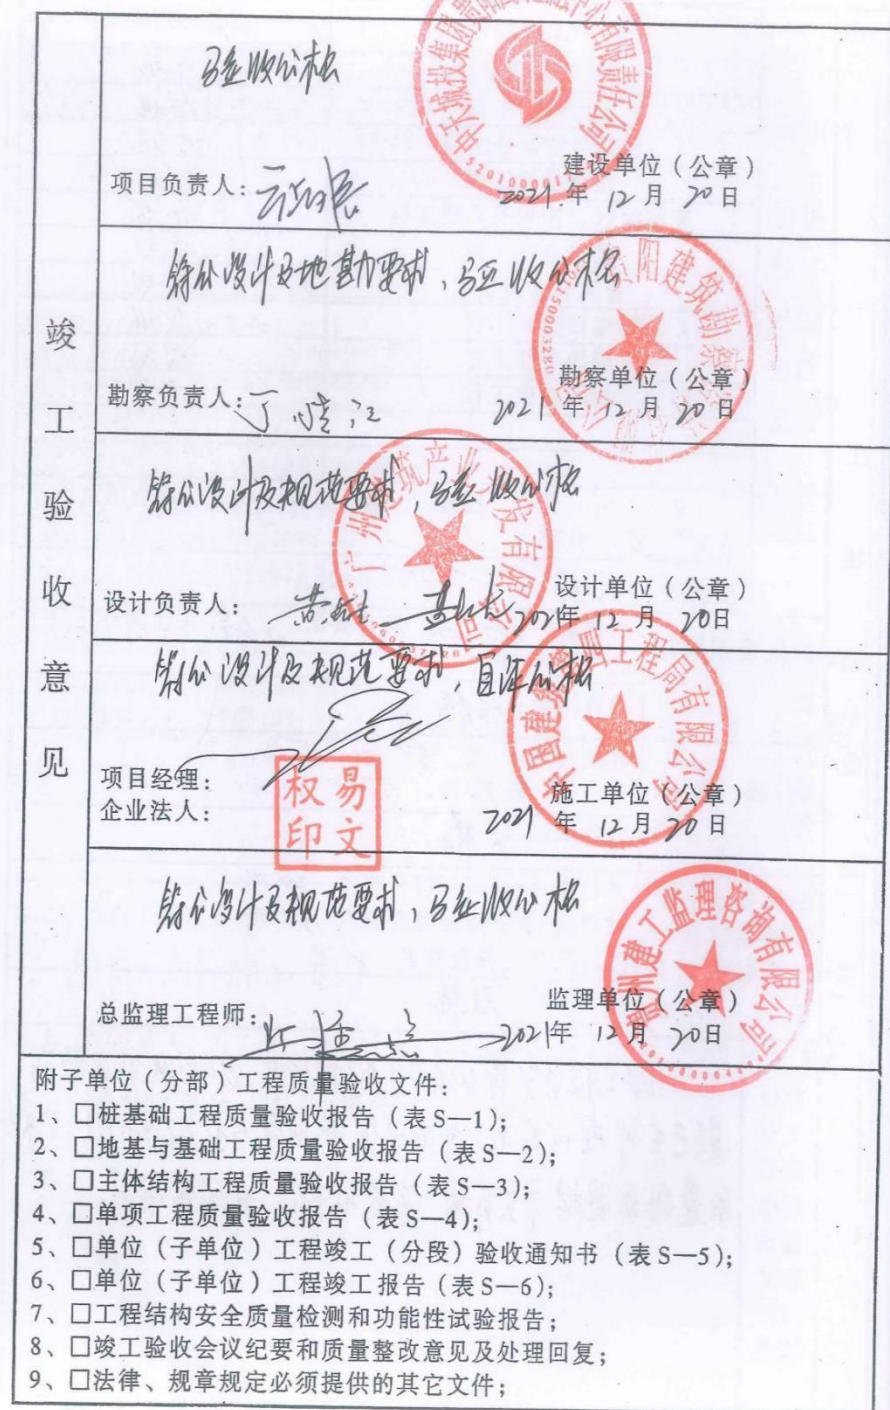 竣工验收意见
验收合格
中天城投集团贵阳
中心有限责任公司
项目负责人:
建设单位(公章)
2021年12月20日
符合设计及地勘要求、验收合格
贵阳建筑勘察
勘察负责人:
勘察单位(公章)
2021年12月20日
符合设计及规范要求,验收合格
广州
筑产业
发有限公司
设计负责人:
设计单位(公章)
2021年12月20日
符合设计及规范要求,自评合格
中国建筑第四工程局有限公司
项目经理:
企业法人:
易文权印
施工单位(公章)
2021年12月20日
符合设计及规范要求,验收合格
贵州建工监理咨询有限公司
总监理工程师:
监理单位(公章)
2021年12月20日
附子单位(分部)工程质量验收文件:
1、□桩基础工程质量验收报告(表S—1);
2、□地基与基础工程质量验收报告(表S—2);
3、□主体结构工程质量验收报告(表S—3);
4、□单项工程质量验收报告(表S—4);
5、□单位(子单位)工程竣工(分段)验收通知书(表S—5);
6、□单位(子单位)工程竣工报告(表S—6);
7、□工程结构安全质量检测和功能性试验报告;
8、□竣工验收会议纪要和质量整改意见及处理回复;
9、□法律、规章规定必须提供的其它文件;